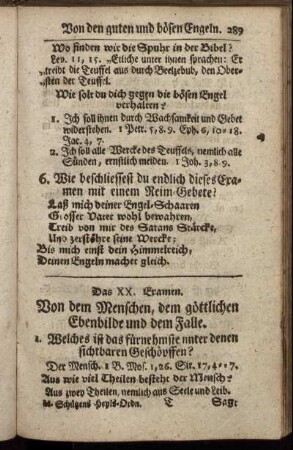 Von den guten und bösen Engeln. 289
Wo finden wir die Spuhr in der Bibel?
Lev. 11, 15. „Etliche unter ihnen sprachen: Er
„treibt die Teuffel aus durch Beelzebub, den Ober-
„sten der Teuffel.
Wie solt du dich gegen die bösen Engel
verhalten?
1. Ich soll ihnen durch Wachsamkeit und Gebet
widerstehen. 1 Petr. 5, 8. 9. Eph. 6, 10-18.
Jac. 4, 7.
2. Ich soll alle Wercke des Teuffels, nemlich alle
Sünden, ernstlich meiden. 1 Joh. 3, 8. 9.
6. Wie beschliessest du endlich dieses Exa-
men mit einem Reim-Gebete?
Laß mich deiner Engel-Schaaren
Grosser Vater wohl bewahren,
Treib von mir des Satans Stärcke,
Und zerstöhre seine Wercke;
Bis mich einst dein Himmelreich,
Deinen Engeln macher gleich.
Das XX. Examen.
Von dem Menschen, dem göttlichen
Ebenbilde und dem Falle.
1. Welches ist das fürnehmste unter denen
sichtbaren Geschöpffen?
Der Mensch. 1 B. Mos. 1, 26. Sir. 17, 4--7.
Aus wie viel Theilen bestehe der Mensch?
Aus zwey Theilen, nemlich aus Seele und Leib.
M. Schützens Heyls-Ordn. T Sage